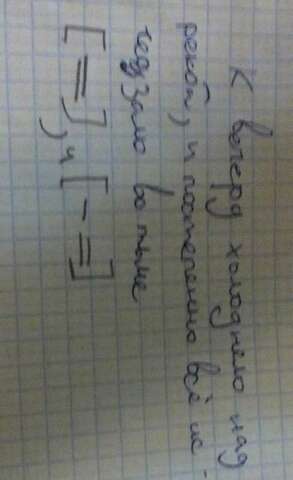 К вечеру холоднело над
рекой, и постепенно всё ис-
чедзало во тьме
[=], и [-=]